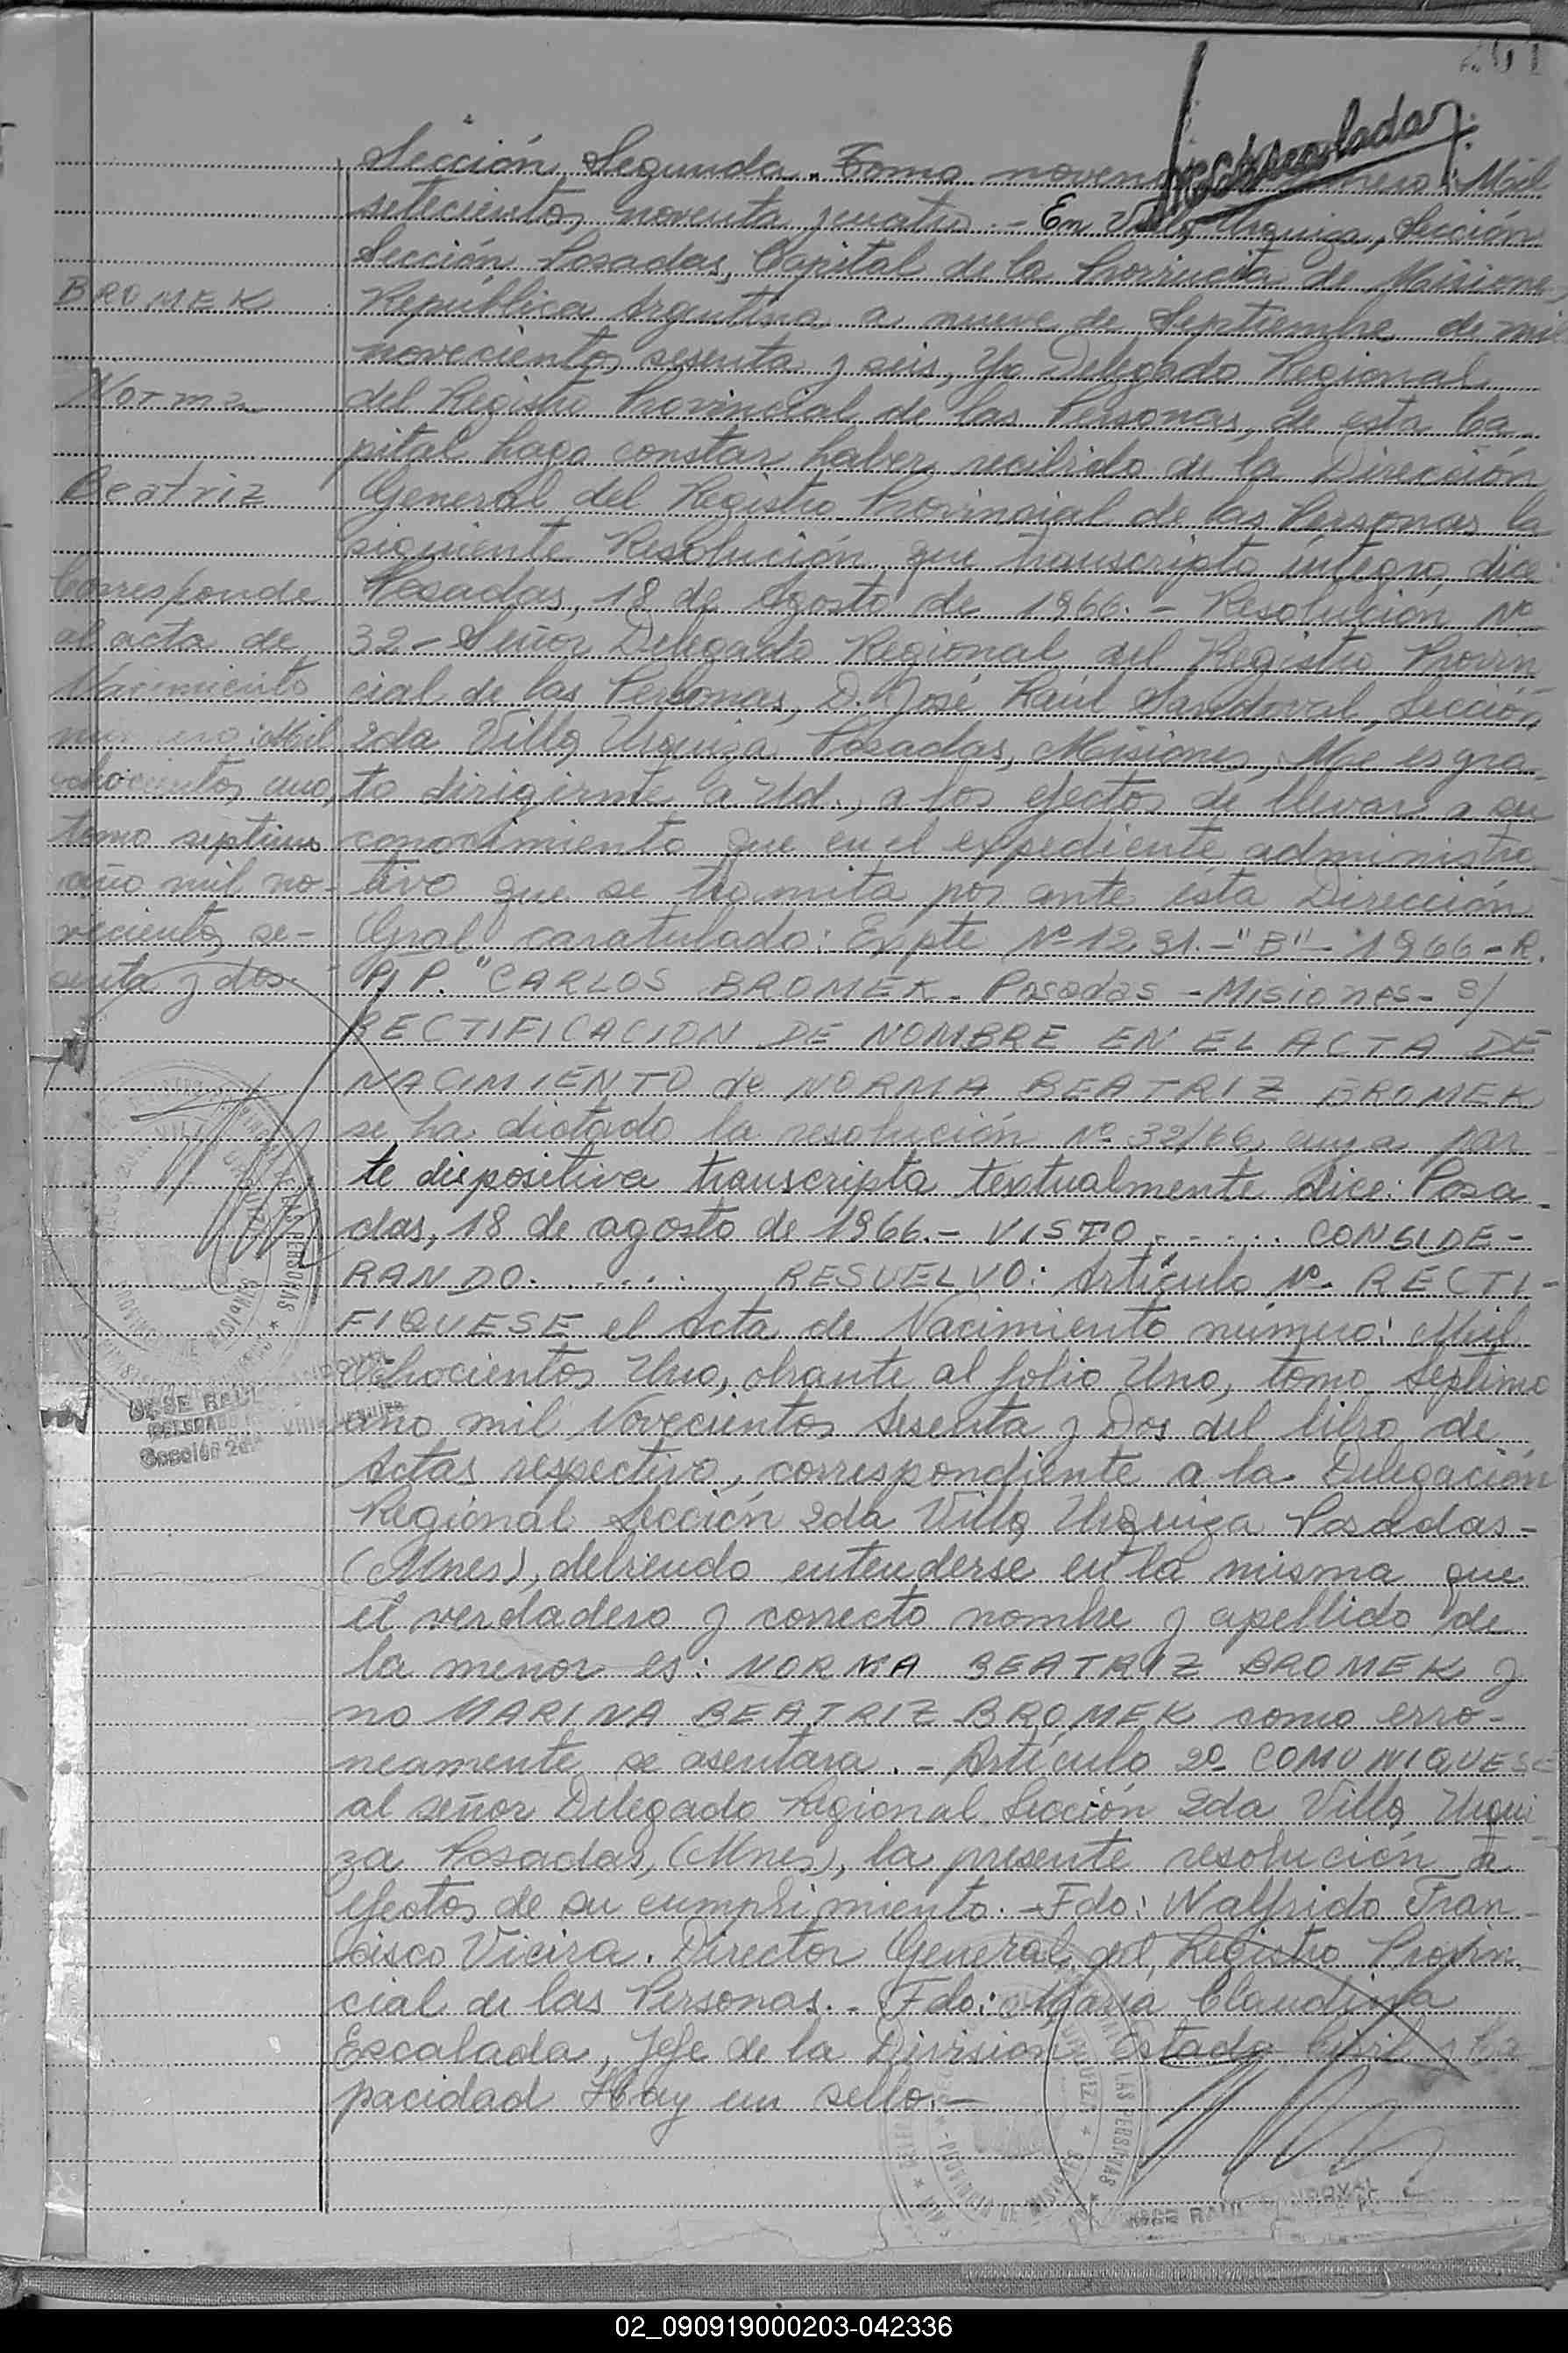 261
Mecanografiada
Sección Segunda. Tomo noveno Mil
setecientos noventa y cuatro.- En Villa Urquiza, Sección
Sección Posadas, Capital de la Provincia de Misiones
República Argentina a nueve de Septiembre de mil
novecientos sesenta y seis, Yo Delegado Regional
del Registro Provincial de las Personas, de esta Ca-
pital hago constar haber recibido de la Dirección
General del Registro Provincial de las Personas la
siguiente Resolución que transcripta íntegra dice:
Posadas, 18 de Agosto de 1966.- Resolución Nº
32- Señor Delegado Regional del Registro Provin
cial de las Personas, D. José Raúl Sandoval, Sección
2da Villa Urquiza Posadas, Misiones, Me es gra-
to dirigirme a Ud., a los efectos de llevar a su
conocimiento que en el expediente administra-
tivo que se tramita por ante ésta Dirección
Gral caratulado: Expte Nº 1231.-"B"- 1966-R.
P. P. "CARLOS BROMEK- Posadas -Misiones- S/
RECTIFICACION DE NOMBRE EN EL ACTA DE
NACIMIENTO de NORMA BEATRIZ BROMEK
se ha dictado la resolución Nº 32/66, cuya par
te dispositiva transcripta textualmente dice: Posa-
das, 18 de agosto de 1966.- VISTO . . . . . CONSIDE-
RANDO. . . . . . RESUELVO: Artículo Nº RECTI-
FIQUESE el Acta de Nacimiento número: Mil
Ochocientos Uno, obrante al folio Uno, tomo Séptimo
año mil Novecientos Sesenta y Dos del libro de
Actas respectivo, correspondiente a la Delegación
Regional Sección 2da Villa Urquiza Posadas-
(Mnes), debiendo entenderse en la misma que
el verdadero y correcto nombre y apellido de
la menor es: NORMA BEATRIZ BROMEK y
no MARINA BEATRIZ BROMEK como erró-
neamente se asentara.- Artículo 2º COMUNIQUESE
al señor Delegado Regional Sección 2da Villa Urqui
za Posadas, (Mnes), la presente resolución a
efectos de su cumplimiento.-Fdo: Walfrido Fran-
cisco Vieira. Director General del Registro Provin
cial de las Personas.- Fdo: María Claudina
Escalada, Jefe de la División Estado Civil y Ca
pacidad Hay un sello.-
BROMEK
Norma
Beatriz
Corresponde
al acta de
Nacimiento
número: Mil
ochocientos uno,
tomo septimo
año mil no-
vecientos se-
senta y dos
JOSE RAUL SANDOVAL
DELEGADO
Sección 2da Villa Urquiza
JOSE RAUL SANDOVAL
02_090919000203-042336